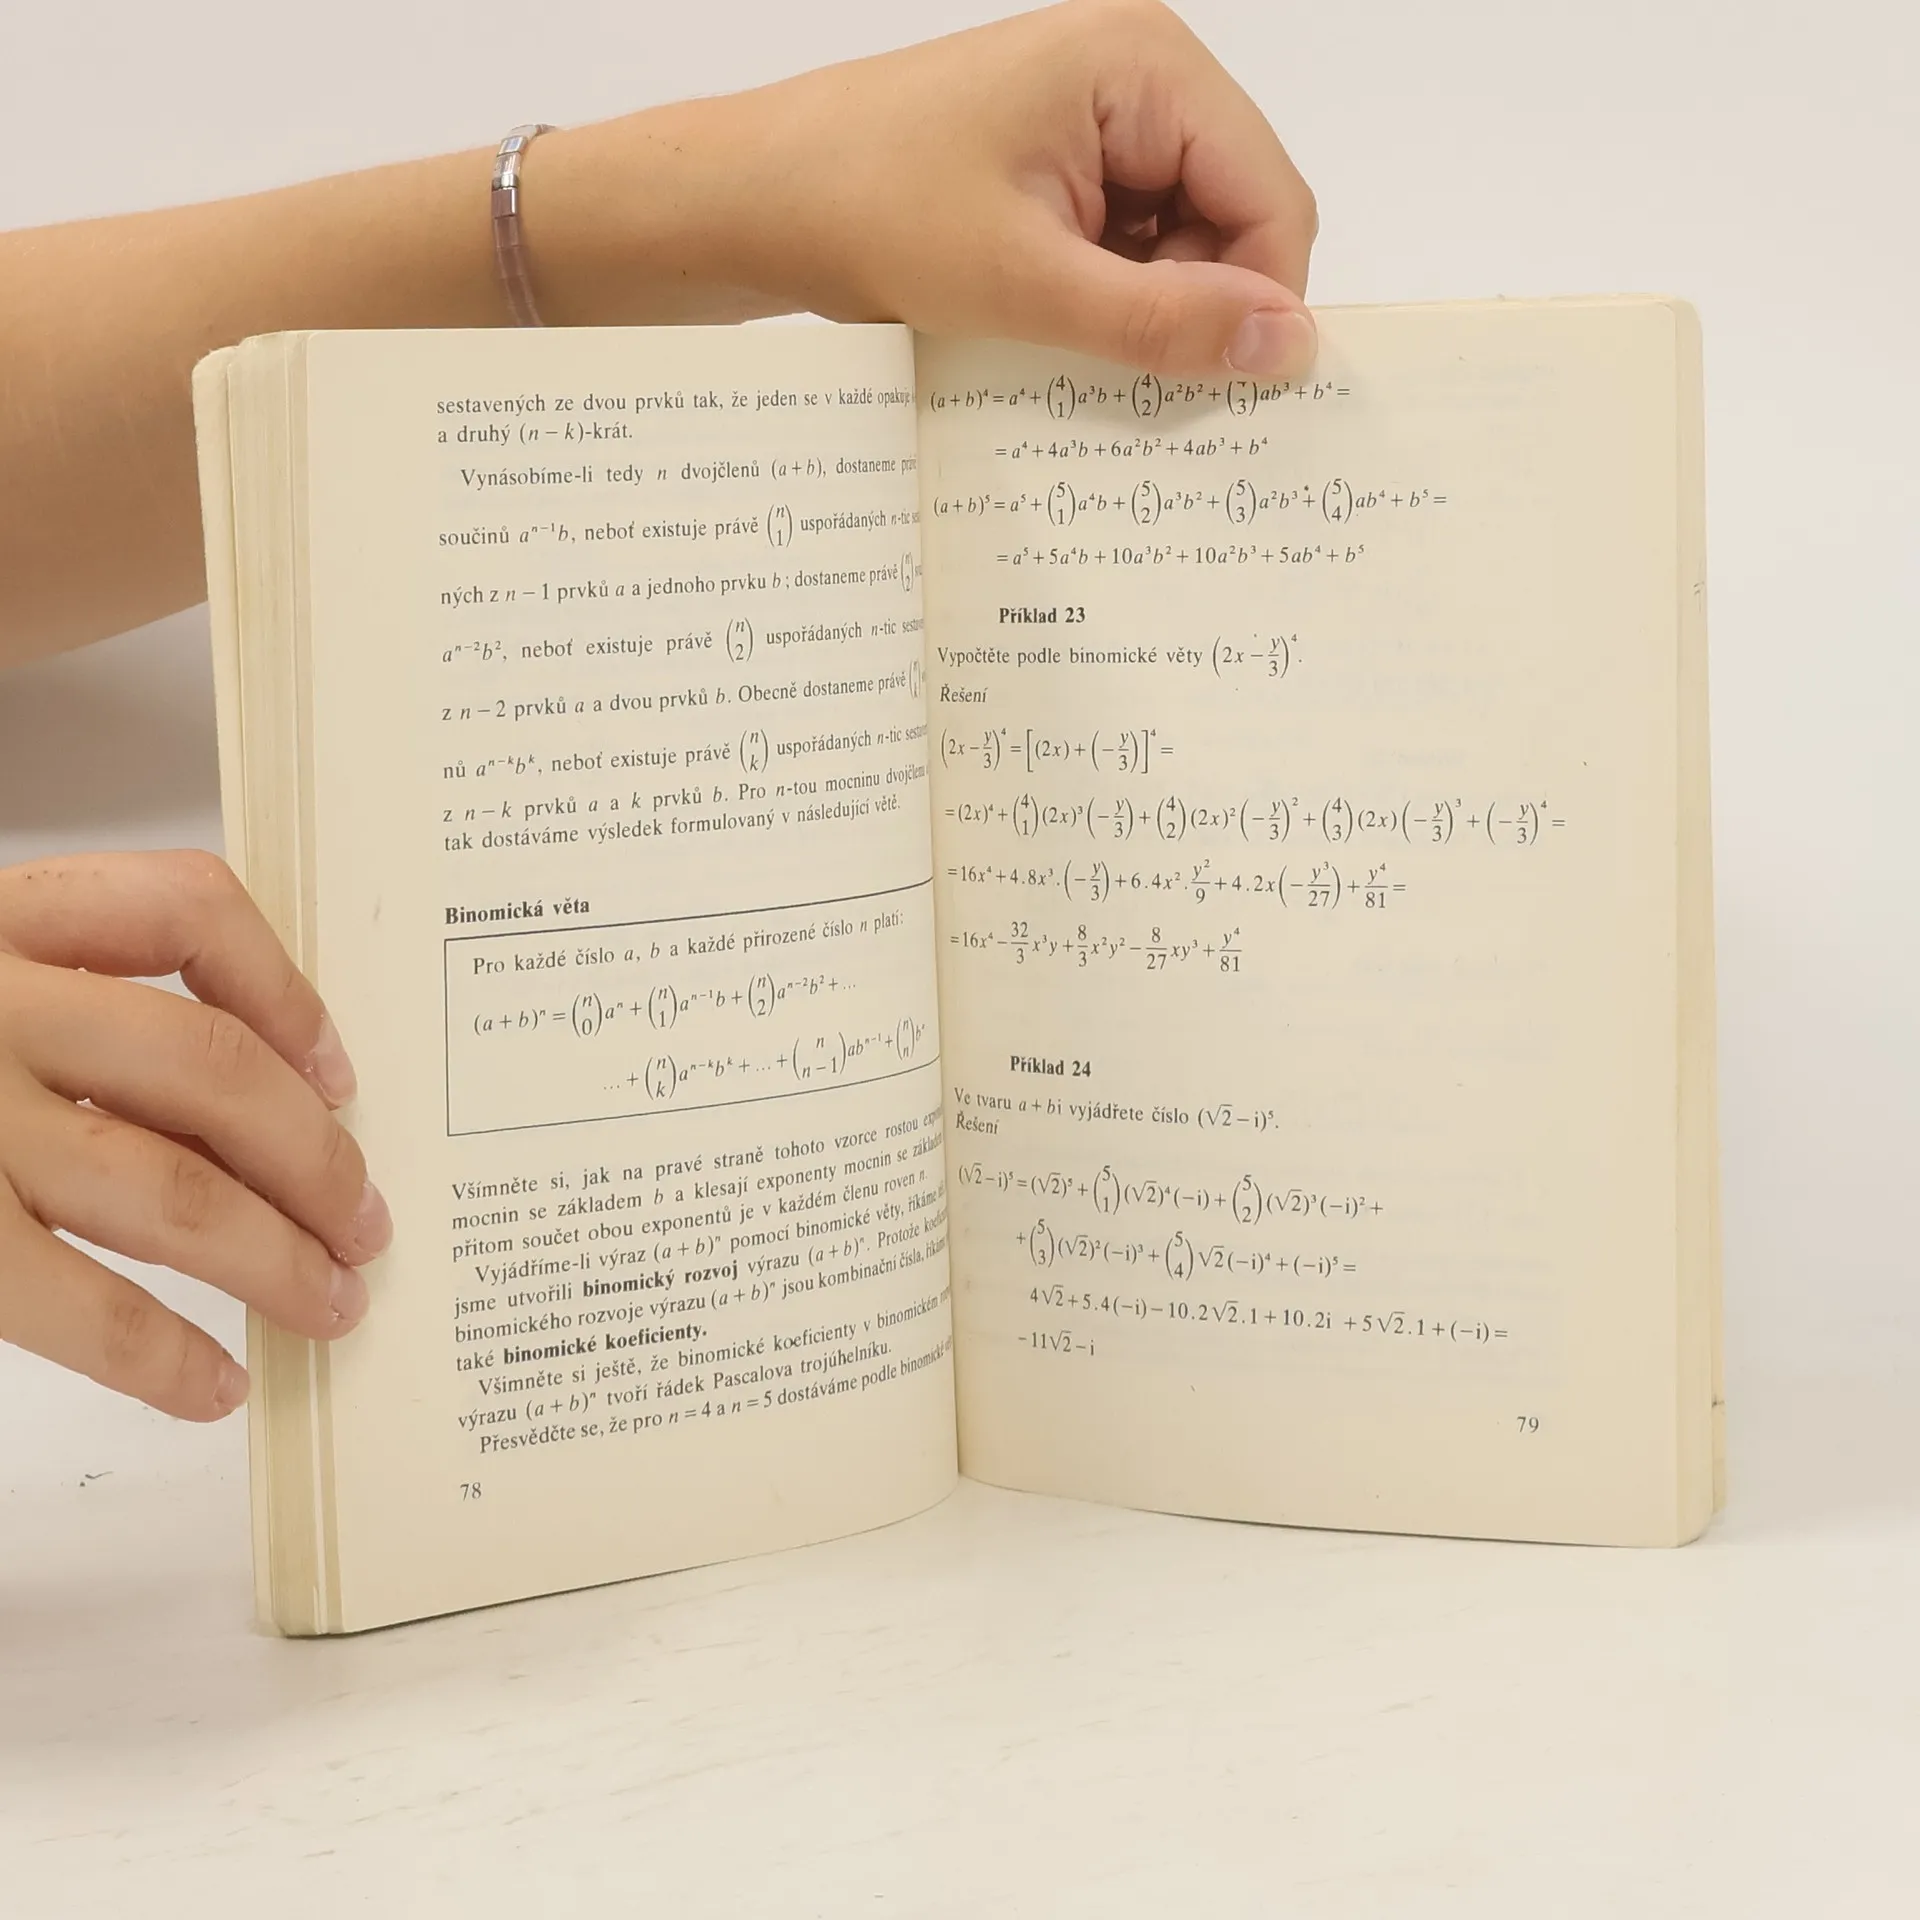 sestavených ze dvou prvků tak, že jeden se v každé opakuje
a druhý (n − k)-krát.
Vynásobíme-li tedy n dvojčlenů (a + b), dostaneme
součinů aⁿ⁻¹b, neboť existuje právě (n 1) uspořádaných n-tic
ných z n − 1 prvků a a jednoho prvku b; dostaneme právě (n 2)
aⁿ⁻²b², neboť existuje právě (n 2) uspořádaných n-tic
z n − 2 prvků a a dvou prvků b. Obecně dostaneme právě
nů aⁿ⁻ᵏbᵏ, neboť existuje právě (n k) uspořádaných n-tic
z n − k prvků a a k prvků b. Pro n-tou mocninu dvojčlenu
tak dostáváme výsledek formulovaný v následující větě.
Binomická věta
Pro každé číslo a, b a každé přirozené číslo n platí:
(a + b)ⁿ = (n 0)aⁿ + (n 1)aⁿ⁻¹b + (n 2)aⁿ⁻²b² + ...
... + (n k)aⁿ⁻ᵏbᵏ + ... + (n n − 1)abⁿ⁻¹ + (n n)bⁿ
Všímněte si, jak na pravé straně tohoto vzorce rostou
mocnin se základem b a klesají exponenty mocnin se
přitom součet obou exponentů je v každém členu roven n.
Vyjádříme-li výraz (a + b)ⁿ pomocí binomické věty, říkáme
jsme utvořili binomický rozvoj výrazu (a + b)ⁿ. Protože
binomického rozvoje výrazu (a + b)ⁿ jsou kombinační čísla,
také binomické koeficienty.
Všimněte si ještě, že binomické koeficienty v binomickém
výrazu (a + b)ⁿ tvoří řádek Pascalova trojúhelníku.
Přesvědčte se, že pro n = 4 a n = 5 dostáváme podle binomické
78
(a + b)⁴ = a⁴ + (4 1)a³b + (4 2)a²b² + (4 3)ab³ + b⁴ =
= a⁴ + 4a³b + 6a²b² + 4ab³ + b⁴
(a + b)⁵ = a⁵ + (5 1)a⁴b + (5 2)a³b² + (5 3)a²b³ + (5 4)ab⁴ + b⁵ =
= a⁵ + 5a⁴b + 10a³b² + 10a²b³ + 5ab⁴ + b⁵
Příklad 23
Vypočtěte podle binomické věty (2x − y/3)⁴.
Řešení
(2x − y/3)⁴ = [(2x) + (−y/3)]⁴ =
= (2x)⁴ + (4 1)(2x)³(−y/3) + (4 2)(2x)²(−y/3)² + (4 3)(2x)(−y/3)³ + (−y/3)⁴ =
= 16x⁴ + 4.8x³.(−y/3) + 6.4x².y²/9 + 4.2x(−y³/27) + y⁴/81 =
= 16x⁴ − 32/3 x³y + 8/3 x²y² − 8/27 xy³ + y⁴/81
Příklad 24
Ve tvaru a + bi vyjádřete číslo (√2 − i)⁵.
Řešení
(√2 − i)⁵ = (√2)⁵ + (5 1)(√2)⁴(−i) + (5 2)(√2)³(−i)² +
+ (5 3)(√2)²(−i)³ + (5 4)√2(−i)⁴ + (−i)⁵ =
4√2 + 5.4(−i) − 10.2√2.1 + 10.2i + 5√2.1 + (−i) =
−11√2 − i
79